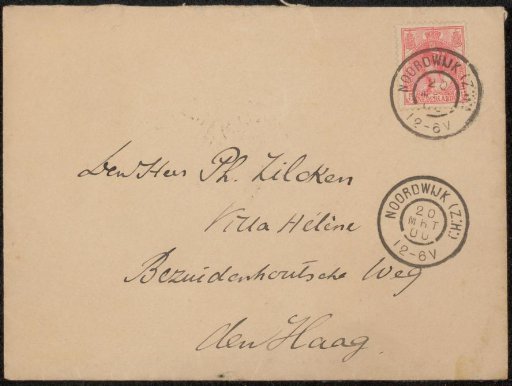 NOORDWIJK (Z.H.)
20
12-6V
Den Heer Ph. Zilcken
Villa Hélène
Bezuidenhoutsche Weg
den Haag
NOORDWIJK (Z.H.)
20
MRT
00
12-6V